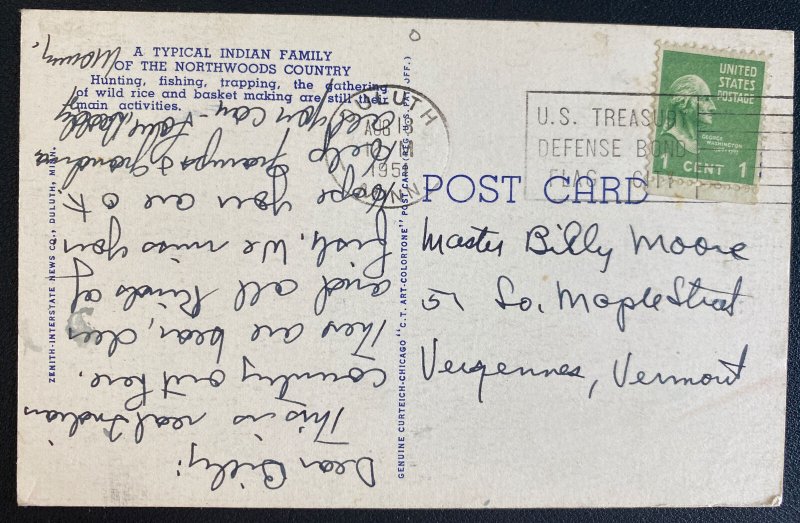 A TYPICAL INDIAN FAMILY
OF THE NORTHWOODS COUNTRY
Hunting, fishing, trapping, the gathering
of wild rice and basket making are still their
main activities.
ZENITH-INTERSTATE NEWS CO., DULUTH, MINN.
GENUINE CURTEICH-CHICAGO "C.T. ART-COLORTONE" POST CARD (REG. U.S. PAT. OFF.)
DULUTH
AUG
10
195
MINN
U.S. TREASURY
DEFENSE BOND
UNITED
STATES
POSTAGE
GEORGE
WASHINGTON
1 CENT 1
POST CARD
Master Billy Moore
51 So. Maple Street
Vergennes, Vermont
Dear Billy:
This is real Indian
country out here.
There are bear, deer
and all kinds of
fish. We miss you
hope you are O.K.
help Gramps & Grandma
all you can - Love Daddy
Mommy.